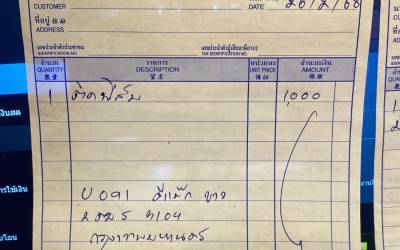 CUSTOMER
DATE 26/2/68
ที่อยู่
ADDRESS
เลขประจำตัวประชาชน เลขประจำตัวผู้เสียภาษีอากร
IDENTIFICATION NO. TAX IDENTIFICATION NO.
จำนวน รายการ หน่วยละ จำนวนเงิน
QUANTITY DESCRIPTION UNIT PRICE AMOUNT
數量 貨名 價註 銀額
1 ติดฟิล์ม 1,000
U091 ดีแม็ก ขาว
7104
กรุงเทพมหานคร
เงินสด
การใช้เงิน
บโอน